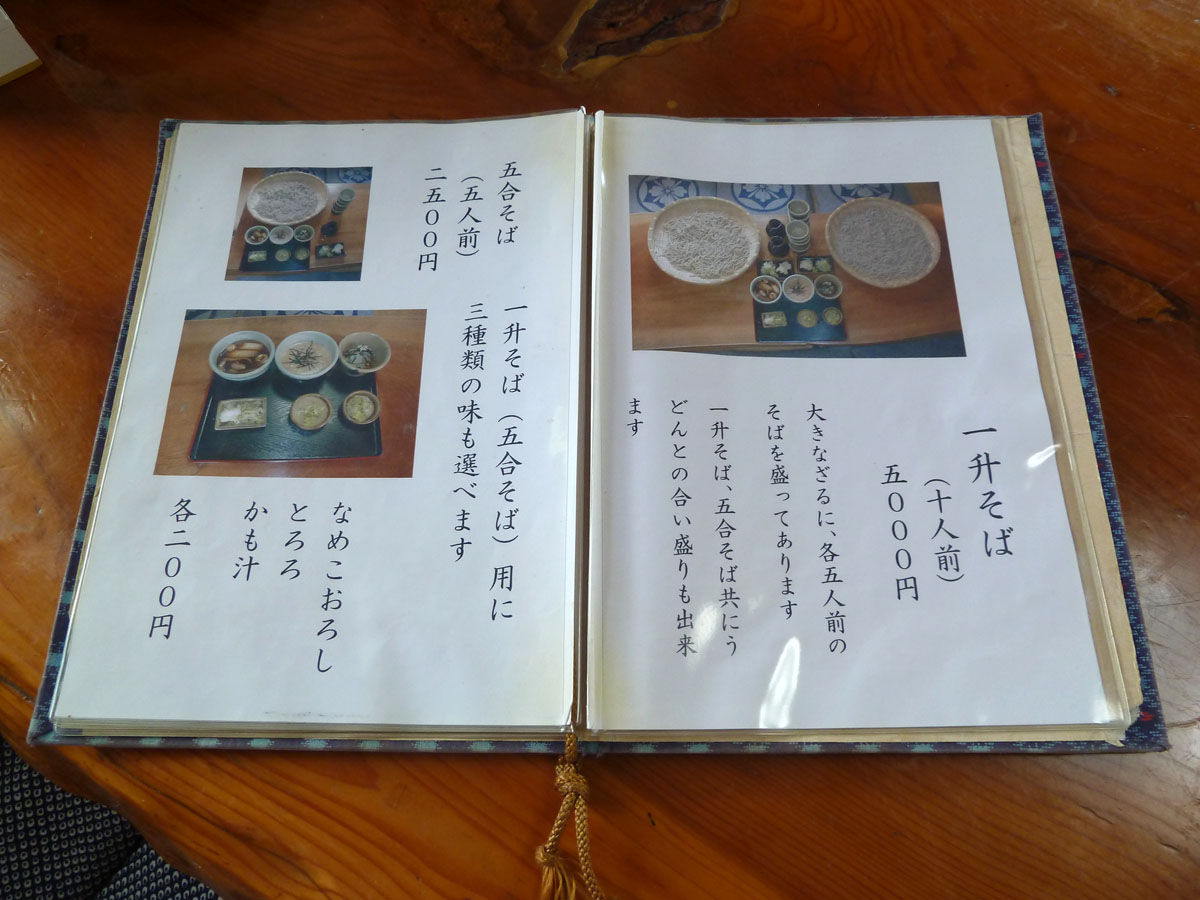 一升そば
(十人前)
五000円
大きなざるに、各五人前の
そばを盛ってあります
一升そば、五合そば共にう
どんとの合い盛りも出来
ます
五合そば
(五人前)
二五00円
一升そば(五合そば)用に
三種類の味も選べます
なめこおろし
とろろ
かも汁
各二00円